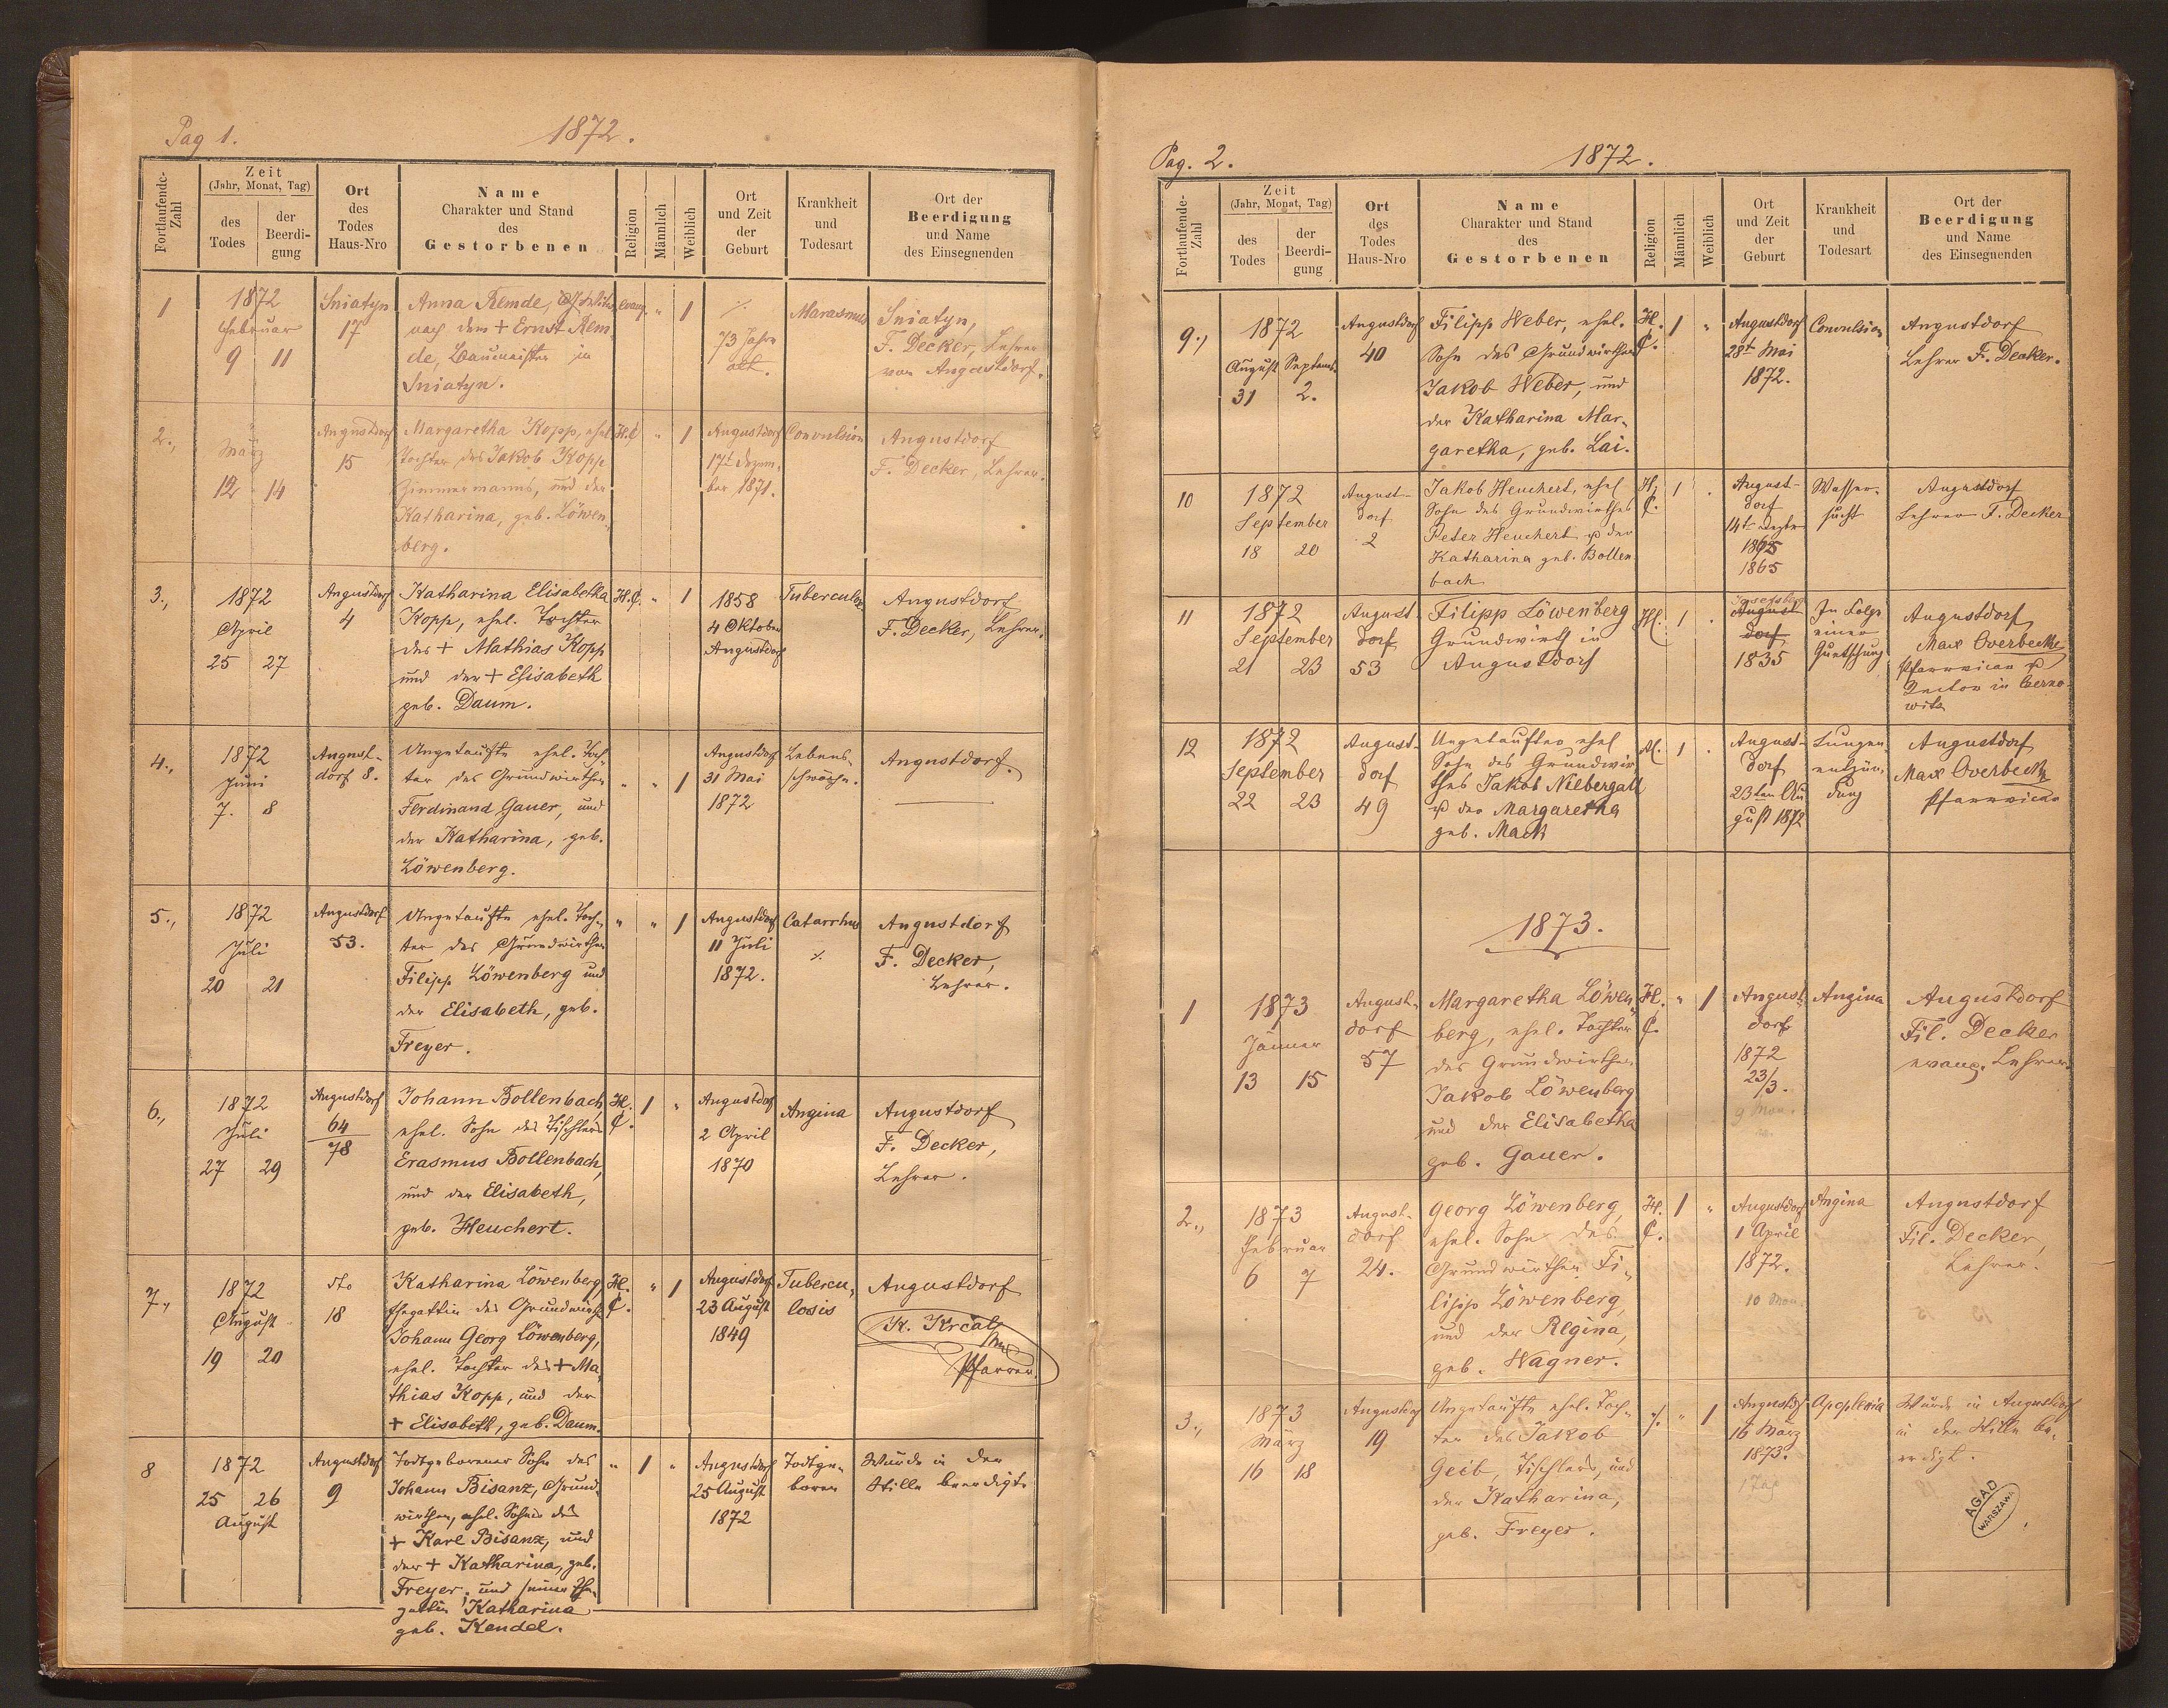 Pag 1.
1872.
Fortlaufende-Zahl
Zeit
(Jahr, Monat, Tag)
des Todes
der Beerdi-gung
Ort des Todes Haus-Nro
Name
Charakter und Stand
des
Gestorbenen
Religion
Männlich
Weiblich
Ort und Zeit der Geburt
Krankheit und Todesart
Ort der
Beerdigung
und Name
des Einsegnenden
1
1872
Februar
9 11
Sniatyn
17
Anna Remde,
nach dem + Ernst Rem-
de, Baumeister in
Sniatyn.
evang.
" 1
73 Jahre
alt.
Marasmus
Sniatyn,
F. Decker, Lehrer
von Augustdorf.
2.,
März
12 14
Augustdorf
15
Margaretha Kopp, ehel.
Tochter des Jakob Kopp
Zimmermanns, und der
Katharina, geb. Löwen-
berg.
H.C.
" 1
Augustdorf
17t Dezem-
ber 1871.
Convulsion
Augustdorf
F. Decker, Lehrer.
3.,
1872
April
25 27
Augustdorf
4
Katharina Elisabetha
Kopp, ehel. Tochter
des + Mathias Kopp
und der + Elisabeth
geb. Daum.
H.C.
" 1
1858
4 Oktober
Augustdorf
Tuberculos
Augustdorf
F. Decker, Lehrer.
4.,
1872
Juni
7. 8
August-
dorf 8.
Ungetaufte ehel. Toch-
ter des Grundwirthen
Ferdinand Gauer, und
der Katharina, geb.
Löwenberg.
" " 1
Augustdorf
31 Mai
1872
Lebens-
schwäche.
Augustdorf.
5.,
1872
Juli
20 21
Augustdorf
53.
Ungetaufte ehel. Toch-
ter des Grundwirthen
Filipp Löwenberg und
der Elisabeth, geb.
Freyer.
" " 1
Augustdorf
11 Juli
1872.
Catarrhus
Augustdorf
F. Decker,
Lehrer.
6.,
1872
Juli
27 29
Augustdorf
64
78
Johann Bollenbach,
ehel. Sohn des Tischlers
Erasmus Bollenbach,
und der Elisabeth,
geb. Heuchert.
H.
C.
1 "
Augustdorf
2 April
1870
Angina
Augustdorf
F. Decker,
Lehrer.
7.,
1872
August
19 20
dto
18
Katharina Löwenberg,
Ehegattin des Grundwirths
Johann Georg Löwenberg,
ehel. Tochter des + Ma-
thias Kopp, und der
+ Elisabeth, geb. Daum.
H.
C.
" 1
Augustdorf
23 August
1849
Tubercu-
losis
Augustdorf
K. Krcal
Pfarrer.
8
1872
25 26
August
Augustdorf
9
Todtgeborener Sohn des
Johann Bisanz, Grund-
wirthen, ehel. Sohnes des
+ Karl Bisanz, und
der + Katharina, geb.
Freyer, und seiner Ehe-
gattin Katharina
geb. Kendel.
" 1 "
Augustdorf
25 August
1872
Todtge-
boren
Wurde in der
Stille beerdigt.
Pag. 2.
1872.
Fortlaufende-Zahl
Zeit
(Jahr, Monat, Tag)
des Todes
der Beerdi-gung
Ort des Todes Haus-Nro
Name
Charakter und Stand
des
Gestorbenen
Religion
Männlich
Weiblich
Ort und Zeit der Geburt
Krankheit und Todesart
Ort der
Beerdigung
und Name
des Einsegnenden
9.,
1872
August Septemb.
31 2.
Augustdorf
40
Filipp Weber, ehel.
Sohn des Grundwirthen
Jakob Weber, und
der Katharina Mar-
garetha, geb. Lai.
H.
C.
1 "
Augustdorf
28t Mai
1872.
Convulsion
Augustdorf
Lehrer F. Decker.
10
1872
September
18 20
August-
dorf
2
Jakob Heuchert, ehel
Sohn des Grundwirthes
Peter Heuchert u der
Katharina geb. Bollen
bach
H.
C.
1
August-
dorf
14t
1865
Wasser-
sucht
Augustdorf
Lehrer F. Decker
11
1872
September
21 23
August-
dorf
53
Filipp Löwenberg
Grundwirth in
Augustdorf
H.
1
Josefsberg
August
dorf
1835
In Folge
einer
Quetschung
Augustdorf
Max Overbecke
Pfarrvicar u
Rector in Czerno-
witz
12
1872
September
22 23
August-
dorf
49
Ungetaufter ehel
Sohn des Grundwir
thes Jakob Niebergall
u der Margaretha
geb. Mack
1
August-
dorf
23ten Au
gust 1872
Lungen
entzün-
dung
Augustdorf
Max Overbecke
Pfarrvicar
1873.
1
1873
Jänner
13 15
August-
dorf
57
Margaretha Löwen-
berg, ehel. Tochter
des Grundwirthen
Jakob Löwenberg
und der Elisabetha
geb. Gauer.
H.
C.
" 1
August-
dorf
1872
23/3.
9 Mon.
Angina
Augustdorf
Fil. Decker
evang. Lehrer.
2.,
1873
Februar
6 7
August-
dorf
24.
Georg Löwenberg,
ehel. Sohn des
Grundwirthen Fi-
lipp Löwenberg,
und der Regina,
geb. Wagner.
H.
C.
1 "
Augustdorf
1 April
1872.
10 Mon.
Angina
Augustdorf
Fil. Decker,
Lehrer.
3.,
1873
März
16 18
Augustdorf
19
Ungetaufte ehel. Toch-
ter des Jakob
Geib, Tischlers, und
der Katharina,
geb. Freyer.
" 1
Augustdorf
16 März
1873.
1 Tag
Apoplexia
Wurde in Augustdorf
in der Stille be-
erdigt.
AGAD
WARSZAWA